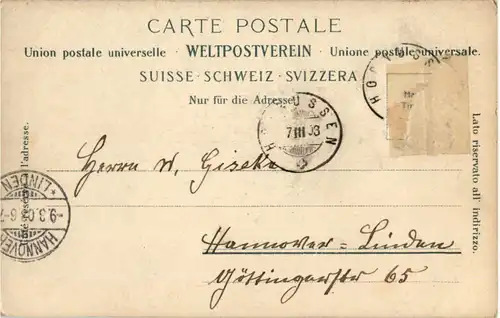 CARTE POSTALE
Union postale universelle · WELTPOSTVEREIN · Unione postale universale.
SUISSE · SCHWEIZ · SVIZZERA
Nur für die Adresse.
7 III 03
l'adresse.
Lato riservato all' indirizzo.
Herrn W. Giseke
Hannover-Linden
Göttingerstr 65
*LINDEN
HANNOVER